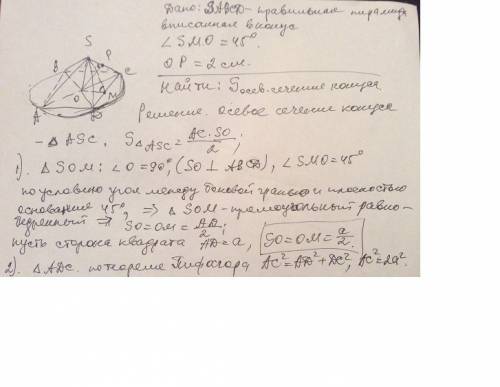 Дано: SABCD - правильная пирамида
вписанная в конус
∠SMO = 45°.
OP = 2 см.
Найти: Sосев. сечение конуса.
Решение. осевое сечение конуса
S
P
B
C
O
M
A
D
- △ ASC, S△ASC = AC·SO/2;
1). △ SOM: ∠O = 90°, (SO ⊥ ABCD), ∠SMO = 45°
по условию угол между боковой гранью и плоскостью
основания 45°, ⇒ △ SOM - прямоугольный равно-
бедренный ⇒ SO = OM = AD/2;
пусть сторона квадрата AD = a, SO = OM = a/2.
2). △ ADC. по теореме Пифагора AC² = AD² + DC², AC² = 2a².